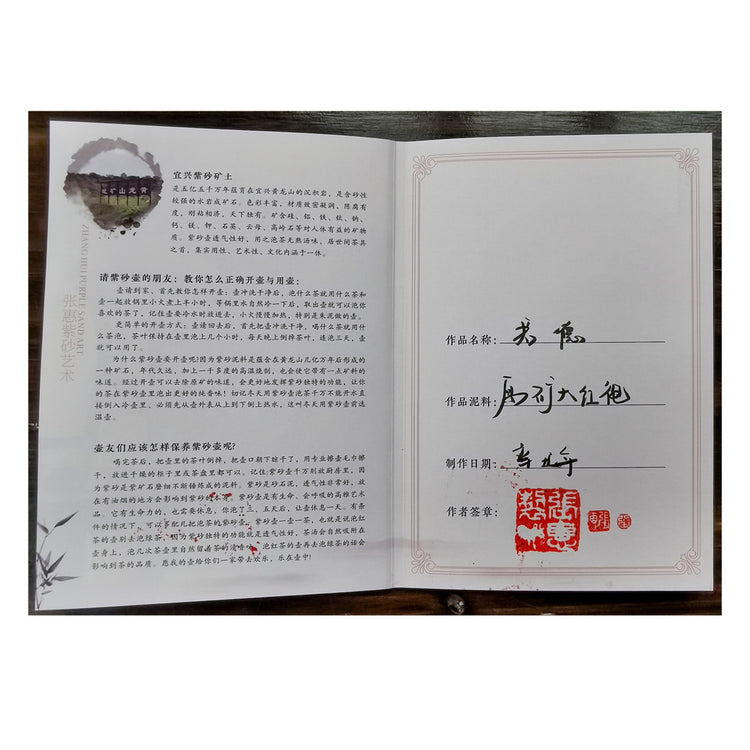 黄龙山矿址
ZHANG HUI PURPLE SAND ART
张惠紫砂艺术
宜兴紫砂矿土
是五亿五千万年蕴育在宜兴黄龙山的沉积岩，是含砂性
较强的水岩成矿石。色彩丰富，材质致密凝润，陈腐有
度，刚粘相济，天下独有。矿含硅、铝、铁、钛、钠、
钙、镁、钾、石英、云母、高岭石等对人体有益的矿物
质。紫砂壶透气性好，用之泡茶无熟汤味，居世间茶具
之首，集实用性、艺术性、文化内涵于一体。
请紫砂壶的朋友：教你怎么正确开壶与用壶：
壶请到家、首先教你怎样开壶：壶冲洗干净后，泡什么茶就用什么茶和
壶一起放锅里小火煮上半小时，等锅里水自然冷一下后，取出壶就可以泡你
喜欢的茶了，记住壶要冷水时放进去，小火慢慢加热，特别是朱泥做的壶。
更简单的开壶方式：壶请回去后，首先把壶冲洗干净，喝什么茶就用什
么茶泡，茶叶保持在壶里泡上几个小时，每天晚上倒掉茶叶，连泡三天，壶
就可以用了。
为什么紫砂壶要开壶呢?因为紫砂泥料是蕴含在黄龙山几亿万年后形成的
一种矿石，年代久远，加上一千多度的高温烧制，也会使它带有一点矿料的
味道。经过开壶可以去除原矿的味道，会更好地发挥紫砂独特的功能，让你
的茶在紫砂壶里泡出更好的纯香味！切记冬天用紫砂壶泡茶千万不能开水直
接倒入冷壶里、必须先从壶外表从上到下倒上热水，这叫冬天用紫砂壶前选
温壶。
壶友们应该怎样保养紫砂壶呢?
喝完茶后，把壶里的茶叶倒掉，把壶口朝下晾干了，用专业擦壶毛巾擦
干，放进干燥的柜子里或茶盘里都可以。记住:紫砂壶千万别放厨房里，因
为紫砂是紫矿石磨细不断锤炼成的泥料。紫砂是砂又名石泥，透气性非常好，放
在有油烟的地方会影响到紫砂的本质，紫砂壶是有生命、会呼吸的高雅艺术
品。它有生命力的，也需要休息，你泡了三、五天后，让壶休息一天。有条
件的情况下，可以多配几把泡茶的紫砂壶，紫砂壶一壶一茶，也就是说泡红
茶的壶别去泡绿茶，因为紫砂独特的功能就是透气性好，茶汤会自然吸附在
壶身上，泡几次茶壶里自然留着茶的清香味，泡红茶的壶再去泡绿茶的话会
影响到茶的品质。愿我的壶给你们一家带去欢乐，乐在壶中!
作品名称：
作品泥料：原矿大红袍
制作日期：
作者签章：張惠製